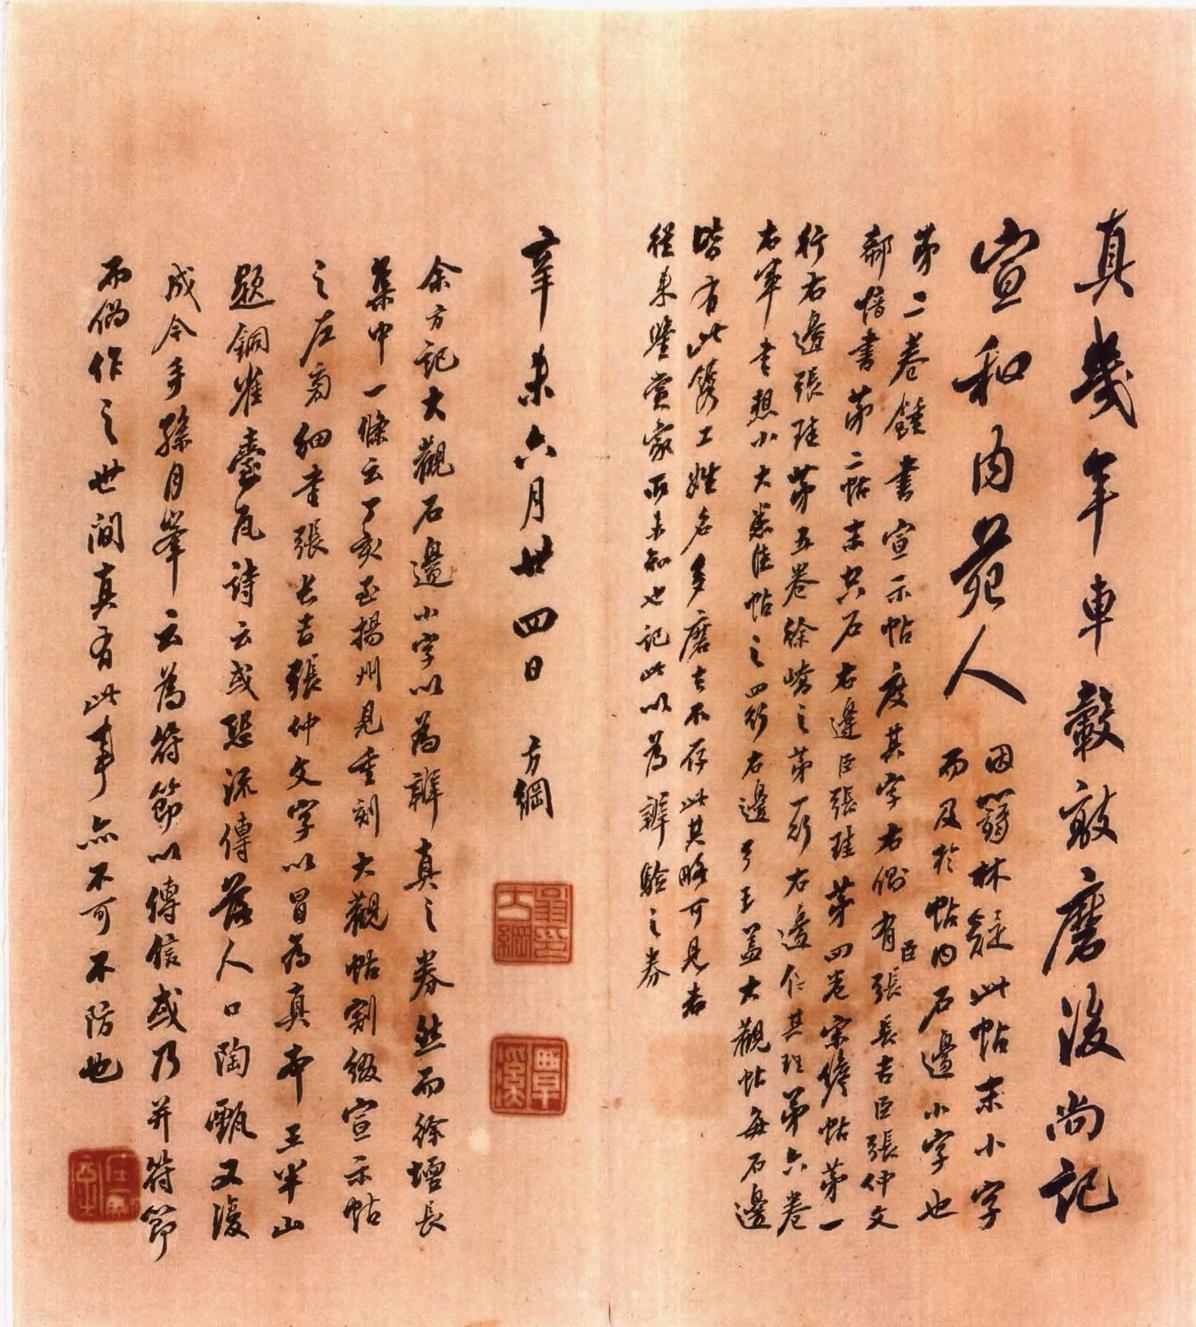 真幾年車轂敲磨後尚記
宣和內苑人
因蒻林疑此帖末小字
而及於帖內石邊小字也
苐二卷鍾書宣示帖度其字右側有臣張長吉臣張仲文
郗愔書苐二帖末共石右邊臣張珪苐四卷宋儋帖第一
行右邊張珪苐五卷徐嶠之第一行右邊仁其現苐六卷
右軍書想小大悉佳帖之四行右邊亨玉蓋大觀帖每石邊
皆有此鐫工姓名多磨去不存此其略可見者
從來鑒賞家所未知也記此以為辨驗之券
辛未六月廿四日 方綱
余方記大觀石邊小字以為辨真之券然而徐壇長
集中一條云丁亥至揚州見重刻大觀帖割綴宣示帖
之左方細書張長吉張仲文字以冒為真本王半山
題銅雀臺瓦詩云或恐流傳落人口陶甄又復
成今手孫月峯云為符節以傳信或乃并符節
而偽作之世間真有此事亦不可不防也
翁印
方綱
覃
溪